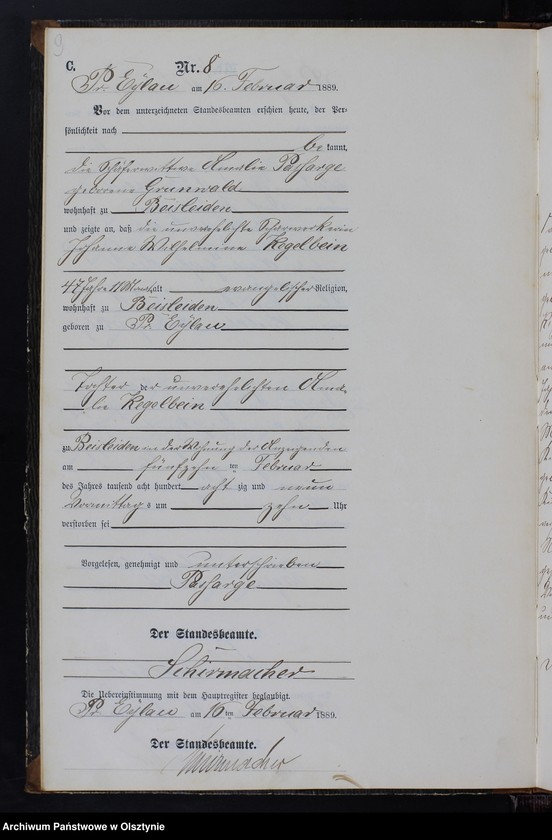 9
C.
Nr. 8
Pr. Eylau am 16. Februar 1889.
Vor dem unterzeichneten Standesbeamten erschien heute, der Per-
sönlichkeit nach
be kannt,
die Schäferwittwe Amalie Passarge
geborene Grunwald
wohnhaft zu Beisleiden
und zeigte an, daß die unverehelichte Scharwerkerin
Johanne Wilhelmine Kegelbein
47 Jahre 11 Monat alt evangelischer Religion,
wohnhaft zu Beisleiden
geboren zu Pr. Eylau
Tochter der unverehelichten Ama-
lie Kegelbein
zu Beisleiden in der Wohnung der Anzeigenden
am fünfzehn ten Februar
des Jahres tausend acht hundert acht zig und neun
Vormittag s um zehn Uhr
verstorben sei
Vorgelesen, genehmigt und unterschrieben
Passarge
Der Standesbeamte.
Schirmacher
Die Uebereinstimmung mit dem Hauptregister beglaubigt.
Pr. Eylau am 16 ten Februar 1889.
Der Standesbeamte.
Schirmacher
Archiwum Państwowe w Olsztynie